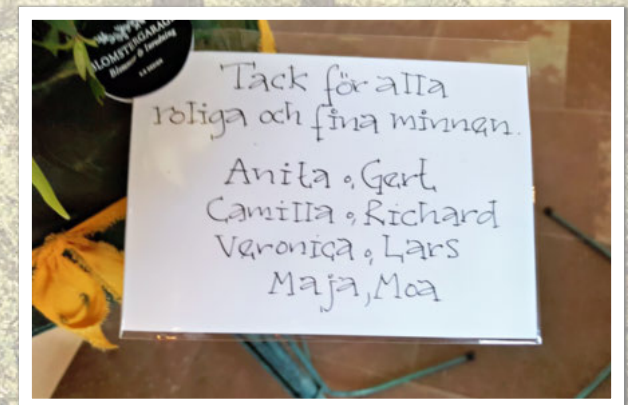 BLOMSTERGARAGE
Blommor & Inredning
Tack för alla
roliga och fina minnen.
Anita o, Gert
Camilla o, Richard
Veronica o, Lars
Maja, Moa